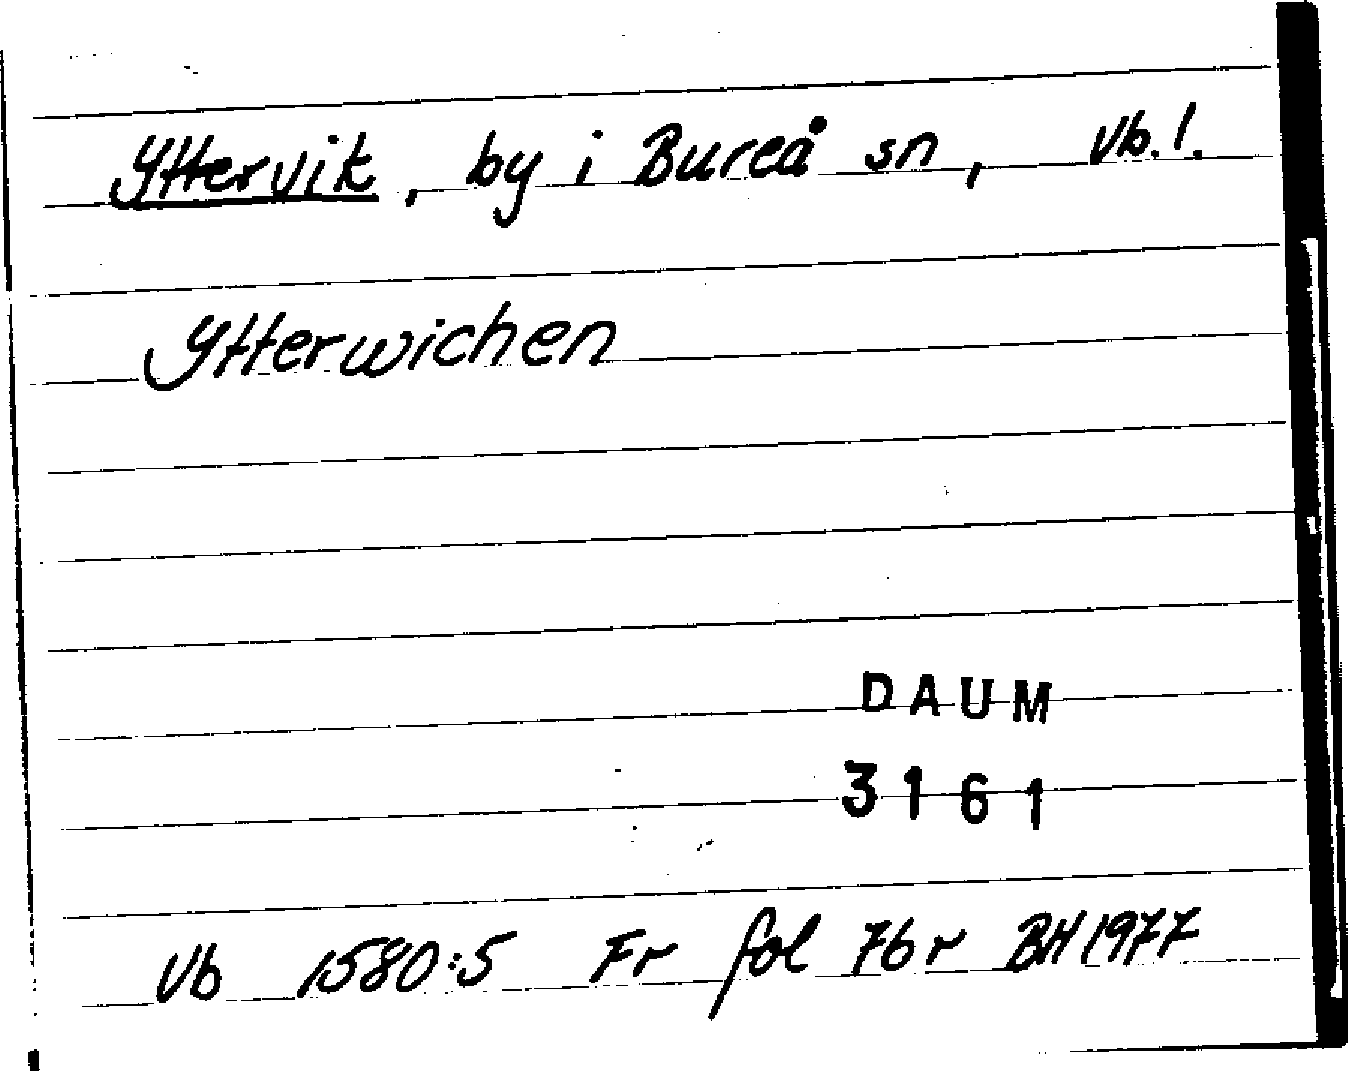 Yttervik, by i Bureå sn, Vb. l.
Ytterwichen
DAUM
3161
Vb 1580:5 Fr fol 76 r BH 1977